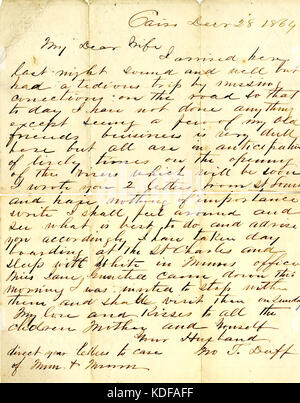 Cairo Decr 28 1864
My Dear Wife
I arrived here
last night sound and well but
had a tedious trip by missing
connections on the road so that
to day I have not done anything
except seeing a few of my old
friends business is very dull
here but all are in anticipation
of lively times on the opening
of the rivers which will be soon
I wrote you 2 letters from St Louis
and have nothing of importance
to write I shall feel around and
see what is best to do and advise
you accordingly I have taken day
boarding at the St Charles and
sleep with White in Munns office
Miss came down this
morning I was invited to stop with
them and shall visit them on Sunday
My love and Kisses to all the
children Mother and yourself
Your Husband
direct your letters to care Jno T. Duff
of Munn &
alamy
Image ID: KDFAFF
www.alamy.com